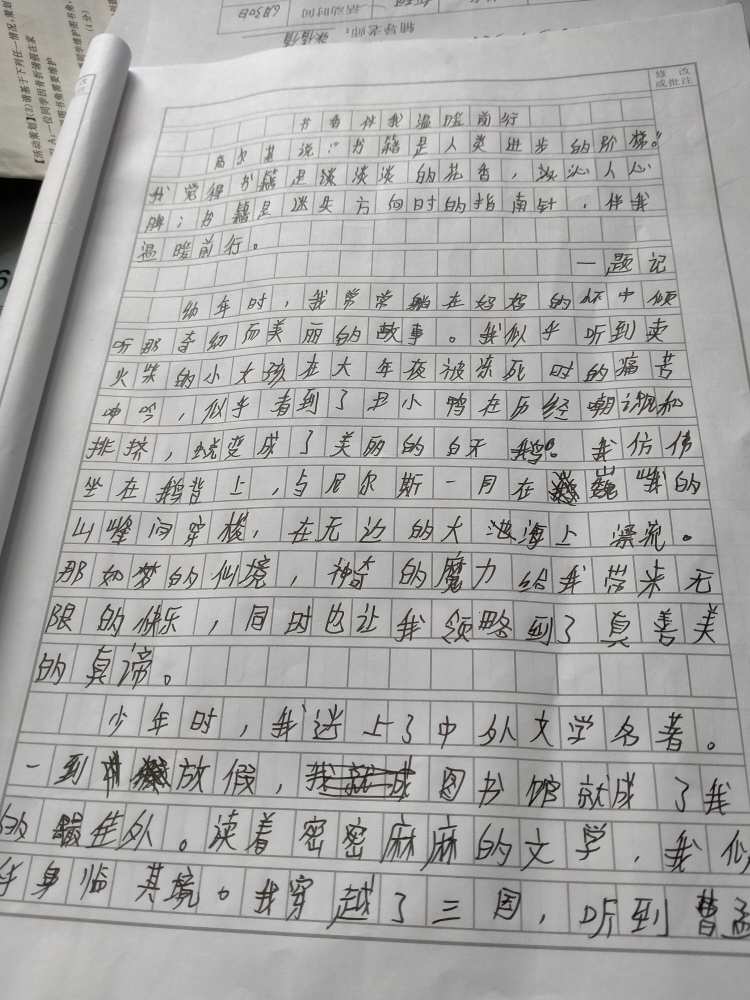 辅导老师：
活动时间
6月30日
【活动策划】(2)请基于下列任一情况，策划
A：一位同学因骨折请假在家
(1分)
修 改
或批注
书香伴我温暖前行
高尔基说："书籍是人类进步的阶梯。"
我觉得书籍是淡淡淡的花香，致沁人心
脾；书籍是迷失方向时的指南针，伴我
温暖前行。
一题记
幼年时，我常常躺在妈妈的怀中倾
听那奇幻而美丽的故事。我似乎听到卖
火柴的小女孩在大年夜被冻死时的痛苦
呻吟，似乎看到了丑小鸭在历经嘲讽和
排挤，蜕变成了美丽的白天鹅。我仿佛
坐在鹅背上，与尼尔斯一同在巍峨的
山峰间穿梭，在无边的大海上漂流。
那如梦的仙境，神奇的魔力给我带来无
限的快乐，同时也让我领略到了真善美
的真谛。
少年时，我迷上了中外文学名著。
一到放假，我就成图书馆就成了我
的最佳处。读着密密麻麻的文学，我似
乎身临其境。我穿越了三国，听到曹孟